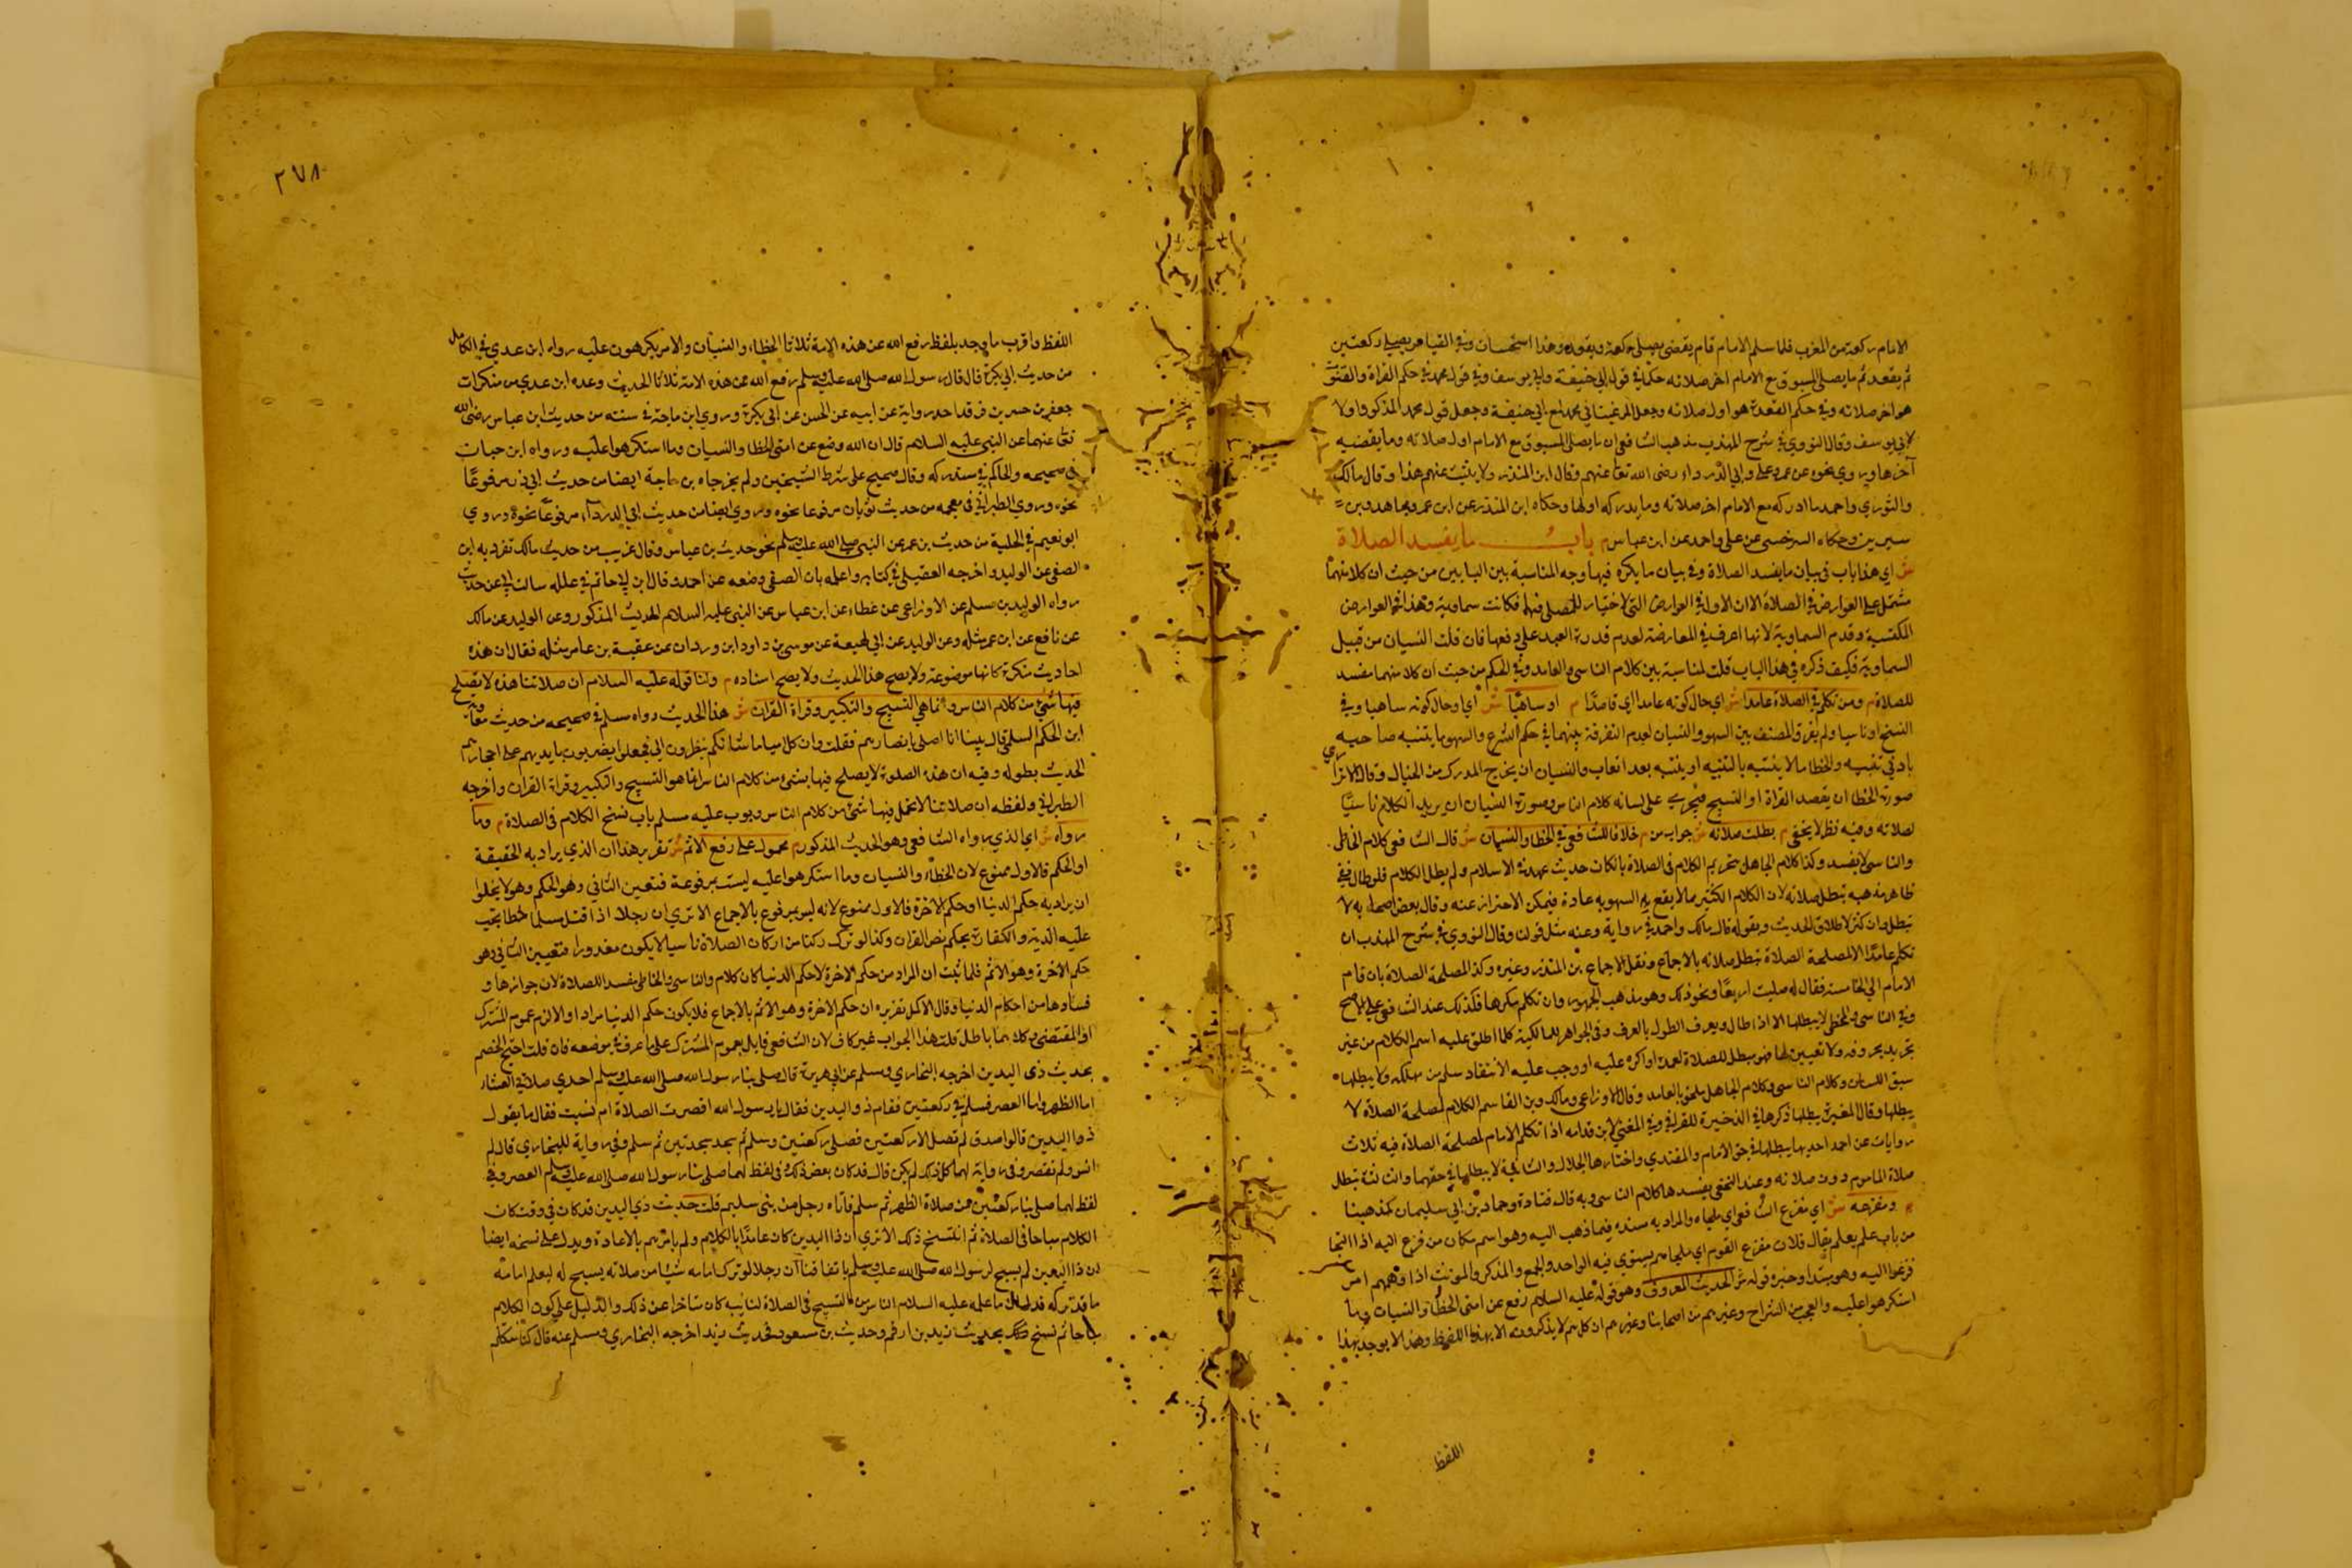 الامام ركعة من المغرب فلما سلم الامام قام يقضي يصلي ركعة ويقعد وهذا استحسان وفي القياس يصلي ركعتين
ثم يقعد ثم ما يصلي المسبوق مع الامام اخر صلاته حكما في قول ابي حنيفة وابي يوسف وفي قول محمد في حكم القراة والقنوت
هو اخر صلاته وفي حكم القعدة هو اول صلاته وجعل المرغيناني محمد مع ابي حنيفة وجعل قول محمد المذكور اولا
لابي يوسف وقال النووي في شرح المهذب مذهب الشافعي ان ما يصلي المسبوق مع الامام اول صلاته وما يقضيه
آخرها وروي نحوه عن عمر وعلي وابي الدرداء رضي الله تعا عنهم وقال ابن المنذر ولا يثبت عنهم هذا وقال مالك
والثوري واحمد ما ادركه مع الامام اخر صلاته وما يدركه اولها وحكاه ابن المنذر عن ابن عمر ومجاهد وبن
سيرين وحكاه السرخسي عن علي واحمد عن ابن عباس م باب ما يفسد الصلاة
ش اي هذا باب في بيان ما يفسد الصلاة وفي بيان ما يكره فيها وجه المناسبة بين البابين من حيث ان كلا منهما
مشتمل على العوارض في الصلاة الا ان الاول في العوارض التي لا اختيار للمصلي فيها فكانت سماوية وهذا في العوارض
المكتسبة وقدم السماوية لانها اعرف في المعارضة لعدم قدرة العبد على دفعها فان قلت النسيان من قبيل
السماوية فكيف ذكره في هذا الباب قلت لمناسبة بين كلام الناسي والعامد وفي الحكم من حيث ان كلا منهما مفسد
للصلاة م ومن تكلم في الصلاة عامدا ش اي حال كونه عامدا اي قاصدا م او ساهيا ش اي او حال كونه ساهيا وفي
النسخ او ناسيا ولم يفرق المصنف بين السهو والنسيان لعدم التفرقة بينهما في حكم الشرع والسهو ما يتنبه صاحبه
بادني تنبيه والخطا ما لا يتنبه بالتنبيه او يتنبه بعد اتعاب والنسيان ان يخرج المدرك من الخيال وقال الاترازي
صورة الخطا ان يقصد القراة او التسبيح فيجري على لسانه كلام الناس وصورة النسيان ان يريد الكلام ناسيا
لصلاته وفيه نظر لا يخفى م بطلت صلاته ش جواب من م خلافا للشافعي في الخطا والنسيان ش قال الشافعي كلام الخاطي
والناسي لا يفسد وكذا كلام الجاهل بتحريم الكلام في الصلاة بان كان حديث عهد بالاسلام ولم يطل الكلام فلو طال ففي
ظاهر مذهبه تبطل صلاته لان الكلام الكثير مما لا يقع به السهو به عادة فيمكن الاحتراز عنه وقال بعض اصحابه لا
تبطل وان كثر لاطلاق الحديث وبقوله قال مالك واحمد في رواية وعنه مثل قولنا وقال النووي في شرح المهذب ان
تكلم عامدا لا لمصلحة الصلاة تبطل صلاته بالاجماع ونقل الاجماع بن المنذر وغيره وكذا لمصلحة الصلاة بان قام
الامام الي الخامسة فقال له صليت اربعا ونحو ذلك وهو مذهب الجمهور وان تكلم مكرها فكذلك عند الشافعي على الاصح
وفي الناسي والمخطي لا يبطلها الا اذا طال ويعرف الطول بالعرف وفي الجواهر للمالكية كلما اطلق عليه اسم الكلام من غير
تحديد بحروف ولا تعيين لها فهو مبطل للصلاة لعمدا او اكره عليه او وجب عليه الانقاذ مسلم من مهلكة ولا يبطلها
سبق اللسان وكلام الناسي وكلام الجاهل ملحق بالعامد وقال الاوزاعي ومالك وبن القاسم الكلام لمصلحة الصلاة لا
يبطلها وقال المغيرة يبطلها ذكرها في الذخيرة للقرافي وفي المغني لابن قدامه اذا تكلم الامام لمصلحة الصلاة فيه ثلاث
روايات عن احمد احديها يبطلها في حق الامام والمقتدي واختارها الخلال والثانية لا يبطلها في حقهما والثالثة تبطل
صلاة الماموم دون صلاته وعند النخعي يفسدها كلام الناسي وبه قال قتادة وحماد بن ابي سليمان كمذهبنا
م ومفزعه ش اي مفزع الشافعي اي ملجاه والمراد به سنده فيما ذهب اليه وهو اسم مكان من فزع اليه اذا التجا
من باب علم يعلم يقال فلان مفزع القوم اي ملجاهم يستوي فيه الواحد والجمع والمذكر والمونث اذا دهمهم امر
فزعوا اليه وهو مبتدا وخبره قوله ش الحديث المعروف وهو قوله عليه السلام رفع عن امتي الخطأ والنسيان وما
استكرهوا عليه والعجب من الشراح وغيرهم من اصحابنا وغيرهم ان كلهم لا يذكرونه الا بهذا اللفظ وهذا لا يوجد بهذا
اللفظ
٢٧٨
اللفظ واقرب ما وجد بلفظ رفع الله عن هذه الامة ثلاثا الخطاء والنسيان والامر يكرهون عليه رواه ابن عدي في الكامل
من حديث ابي بكرة قال قال رسول الله صلى الله عليه وسلم رفع الله عن هذه الامة ثلاثا الحديث وعده ابن عدي من منكرات
جعفر بن جسر بن فرقد احد رواية عن ابيه عن الحسن عن ابي بكرة وروي ابن ماجة في سننه من حديث ابن عباس رضي الله
تعا عنهما عن النبي عليه السلام قال ان الله وضع عن امتي الخطا والنسيان وما استكرهوا عليه ورواه ابن حبان
في صحيحه والحاكم في مستدركه وقال صحيح على شرط الشيخين ولم يخرجاه بن ماجة ايضا من حديث ابي ذر مرفوعا
نحوه وروي الطبراني في معجمه من حديث ثوبان مرفوعا نحوه وروي ايضا من حديث ابي الدرداء مرفوعا نحوه وروي
ابو نعيم في الحلية من حديث بن عمر عن النبي صلى الله عليه وسلم نحو حديث بن عباس وقال غريب من حديث مالك تفرد به ابن
الصفي عن الوليد واخرجه العقيلي في كتابه واعله بابن الصفي وضعه عن احمد وقال ابن ابي حاتم في علله سالت ابي عن حديث
رواه الوليد بن مسلم عن الاوزاعي عن عطاء عن ابن عباس عن النبي عليه السلام الحديث المذكور وعن الوليد عن مالك
عن نافع عن ابن عمر مثله وعن الوليد عن ابي لهيعة عن موسى بن داود ابن وردان عن عقبة بن عامر مثله فقال ان هذه
احاديث منكرة كانها موضوعة ولا يصح هذا الحديث ولا يصح اسناده م ولنا قوله عليه السلام ان صلاتنا هذه لا يصلح
فيها شيء من كلام الناس وانما هي التسبيح والتكبير وقراة القران ش هذا الحديث رواه مسلم في صحيحه من حديث معاوية
ابن الحكم السلمي قال بينا انا اصلي بابصارهم فقلت وان كل امياه ما شانكم ينظرون الي فجعلوا يضربون بايديهم على افخاذهم
الحديث بطوله وفيه ان هذه الصلوة لا يصلح فيها شيء من كلام الناس انما هو التسبيح والتكبير وقراة القران واخرجه
الطبراني ولفظه ان صلاتنا لا يحل فيها شيء من كلام الناس وبوب عليه مسلم باب نسخ الكلام في الصلاة م وما
رواه ش اي الذي رواه الشافعي وهو الحديث المذكور م محمول على رفع الاثم ش تقرير هذا ان الذي يراد به الحقيقة
او الحكم فالاول ممنوع لان الخطأ والنسيان وما استكرهوا عليه ليست بمرفوعة فتعين الثاني وهو الحكم وهو لا يخلوا
ان يراد به حكم الدنيا او حكم الاخرة فالاول ممنوع لانه ليس بمرفوع بالاجماع الا تري ان رجلا اذا قتل مسلما خطا يجب
عليه الدية والكفارة بحكم نص القران وكذا لو ترك ركنا من اركان الصلاة ناسيا لا يكون معذورا فتعيين الثاني وهو
حكم الاخرة وهو الاثم فلما ثبت ان المراد من حكم الاخرة لا حكم الدنيا كان كلام والناسي والخاطي مفسد اللصلاة لان جوازها و
فسادها من احكام الدنيا وقال الاكمل تقريره ان حكم الاخرة وهو الاثم بالاجماع فلا يكون حكم الدنيا مرادا والا لزم عموم المشترك
او المقتضي وكلاهما باطل قلت هذا الجواب غير كاف لان الشافعي قايل بعموم المشترك على ما عرف في موضعه فان قلت احتج الخصم
بحديث ذي اليدين اخرجه البخاري ومسلم عن ابي هريرة قال صلى بنا رسول الله صلى الله عليه وسلم احدي صلاتي العشاء
اما الظهر واما العصر فسلم في ركعتين فقام ذو اليدين فقال يا رسول الله اقصرت الصلاة ام نسيت فقال ما يقول
ذو اليدين قالوا صدق لم تصل الا ركعتين فصلى ركعتين وسلم ثم سجد سجدتين ثم سلم وفي رواية للبخاري قال لم
انس ولم تقصر وفي رواية لهما كل ذلك لم يكن قال قد كان بعض ذلك وفي لفظ لهما صلى بنا رسول الله صلى الله عليه وسلم العصر وفي
لفظ لهما صلى بنا ركعتين من صلاة الظهر ثم سلم فاتاه رجل من بني سليم قلت حديث ذي اليدين قد كان في وقت كان
الكلام مباحا في الصلاة ثم انتسخ ذلك الا تري ان ذا اليدين كان عامدا بالكلام ولم يامرهم بالاعادة ويدل على نسخه ايضا
ان ذا اليدين لم يسبح لرسول الله صلى الله عليه وسلم باتفاقنا ان رجلا لو ترك امامه شيئا من صلاته يسبح له ليعلم امامه
ما قد تركه فدل ان ما علمه عليه السلام الناس من التسبيح في الصلاة لنائبه كان متاخرا عن ذلك والدليل على كون الكلام
مباحا ثم نسخ بحديث زيد بن ارقم وحديث بن مسعود فحديث زيد اخرجه البخاري ومسلم عنه قال كنا نتكلم